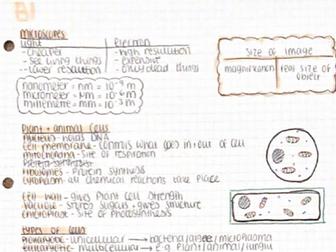 B1
Microscopes
Light
- cheaper
- see living things
- lower resolution
Electron
- high resolution
- expensive
- only dead things
size of image
magnification
real size of object
nanometer = nm = 10⁻⁹ m
micrometer = μm = 10⁻⁶ m
millimetre = mm = 10⁻³ m
Plant + animal Cells
Nucleus - holds DNA
Cell membrane - controls what goes in + out of cell
mitochondria - site of respiration
ribosomes - protein synthesis
cytoplasm - all chemical reactions take place
cell wall - gives plant cell strength
vacuole - stores sugars + gives structure
chloroplast - site of photosynthesis
types of cells
prokaryotic - unicellular → bacteria/algae/
eukaryotic - multicellular → e.g plant/animal/fungi